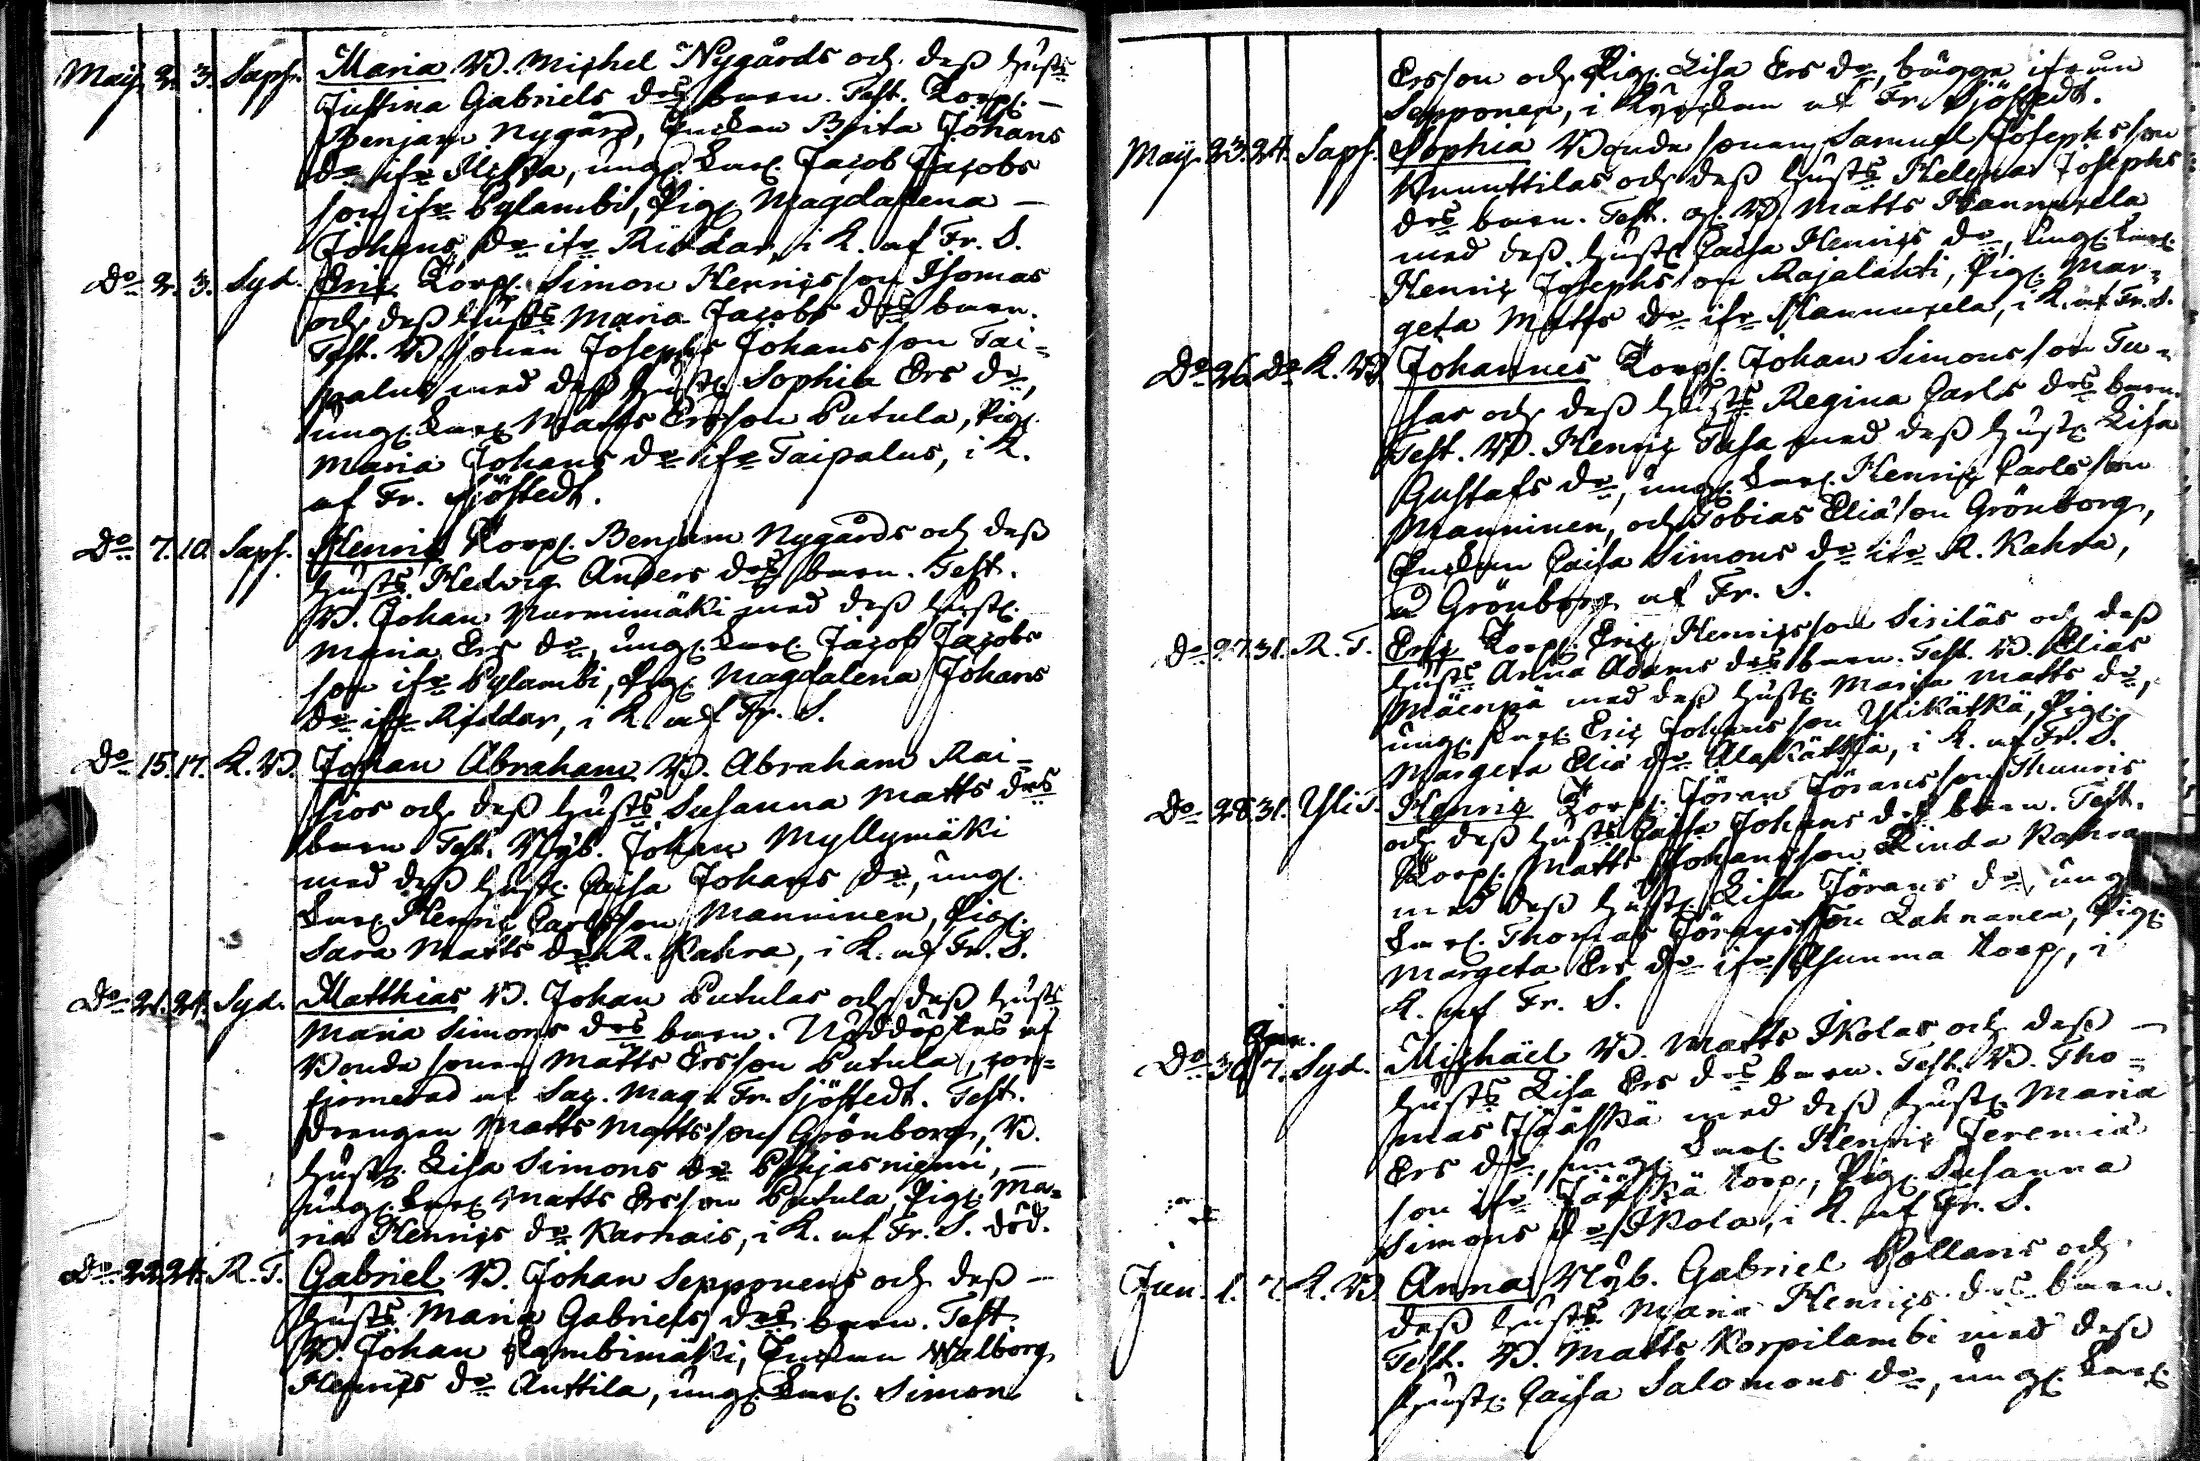 Maij. 2. 3. Saps. Maria B. Michel Nygårds och dess hust:s
Justina Gabriels d:rs barn. Test. Torp. –
Benjam Nygård, Enckan Brita Johans
d:r ifr. Ilissa, ung. Karl. Jacob Jacobs
son ifr. Pylambi, Pig. Magdalena –
Johans d:r ifr. Riddar, i K. af Fr. S.
D:o 2. 3. Syd. Eric Torp. Simon Henricsson Isomas
och dess hust:s Maria Jacobs d:rs barn.
Test. B. sonen Josephs Johansson Tai=
palus med dess hust. Sophia Ers d:r,
ung. Karl. Matts Ersson Putula, Pig.
Maria Johans d:r ifr. Taipalus, i K.
af Fr. Sjöstedt.
D:o 7. 10. Saps. Henric Torp. Benjam Nygårds och dess
hust:s Hedvig Anders d:rs barn. Test.
B. Johan Nurmimäki med dess hust.
Maria Ers d:r, ung. Karl. Jacob Jacobs
son ifr. Pylambi, Pig. Magdalena Johans
d:r ifr. Riddar, i K. af Fr. S.
D:o 15. 17. K. B. Johan Abraham B. Abraham Rai=
sios och dess hust:s Susanna Matts d:rs
barn. Test. Nyb. Johan Myllymäki
med dess hust. Caisa Johans d:r, ung.
Karl. Henric Carlsson Manninen, Pig.
Sara Matts d:r R. Kahra, i K. af Fr. S.
D:o 21. 24. Syd. Matthias B. Johan Putulas och dess hust:s
Maria Simons d:rs barn. Nöddöptes af
Bonde sonen Matts Ersson Putula, con=
firmerad af Sac. Mag. Fr. Sjöstedt. Test.
Drengen Matts Mattsson Grönborg, B.
hust. Lisa Simons d:r Pohjasniemi, –
ung. Karl. Matts Ersson Putula, Pig. Ma=
ria Henrics d:r Karhais, i K. af Fr. S. död.
D:o 22. 24. R. T. Gabriel B. Johan Sepponens och dess –
hust:s Maria Gabriels d:rs barn. Test.
B. Johan Lambimäki, Enckan Walborg
Henrics d:r Anttila, ung. Karl. Simon
Ersson och Pig. Lisa Ers d:r, bägge ifrån
Sepponen, i Kyrckan af Fr. Sjöstedt.
Maij. 23. 24. Saps. Sophia Bonde sonen Samuel Josephsson
Knuuttilas och dess hust:s Helena Josephs
d:rs barn. Test. B. Matts Hannuxela
med dess hust. Caisa Henrics d:r, ung. Karl.
Henric Josephsson Rajalahti, Pig. Mar=
geta Matts d:r ifr. Hannuxela, i K. af Fr. S.
D:o 26. D:o K. B. Johannes Torp. Johan Simonsson Tu=
sas och dess hust:s Regina Carls d:rs barn.
Test. B. Henric Tusa med dess hust. Lisa
Gustafs d:r, ung. Karl. Henric Carlsson
Manninen, och Tobias Eliæson Grönborg,
Enckan Caisa Simons d:r ifr. R. Kahra,
å Grönborg af Fr. S.
D:o 27. 31. R. T. Eric Torp. Eric Henricsson Siriläs och dess
hust:s Anna Adams d:rs barn. Test. B. Elias
Mäenpä med dess hust. Maria Matts d:r,
ung. Karl. Eric Johansson Ylikätkä, Pig.
Margeta Eliæ d:r Alakätkä, i K. af Fr. S.
D:o 28. 31. Ylis. Henric Torp. Jöran Jöransson Thunris
och dess hust:s Caisa Johans d:rs barn. Test.
Torp. Matts Johansson Rinda Kahra
med dess hust. Lisa Jörans d:r, ung.
Karl. Thomas Jöransson Lahnanen, Pig.
Margeta Ers d:r ifr. Asunma torp, i
K. af Fr. S.
Jun.
D:o 30. 7. Syd. Michaël B. Matts Ikolas och dess –
hust:s Lisa Ers d:rs barn. Test. B. Tho=
mas Jääskä med dess hust. Maria
Ers d:r, ung. Karl. Henric Jeremiæ
son ifr. Jääskä torp, Pig. Susanna
Simons d:r Ikola, i K. af Fr. S.
Jun. 1. 7. K. B. Anna Nyb. Gabriel Pollaris och
dess hust:s Maria Henrics d:rs barn.
Test. B. Matts Korpilambi med dess
hust. Caisa Salomons d:r, ung. Karl.